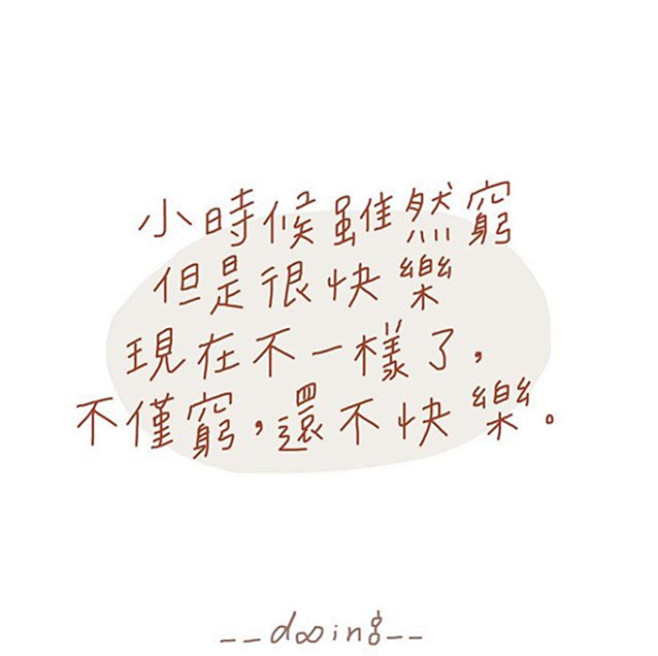 小時候雖然窮
但是很快樂
現在不一樣了，
不僅窮，還不快樂。
__dooing__